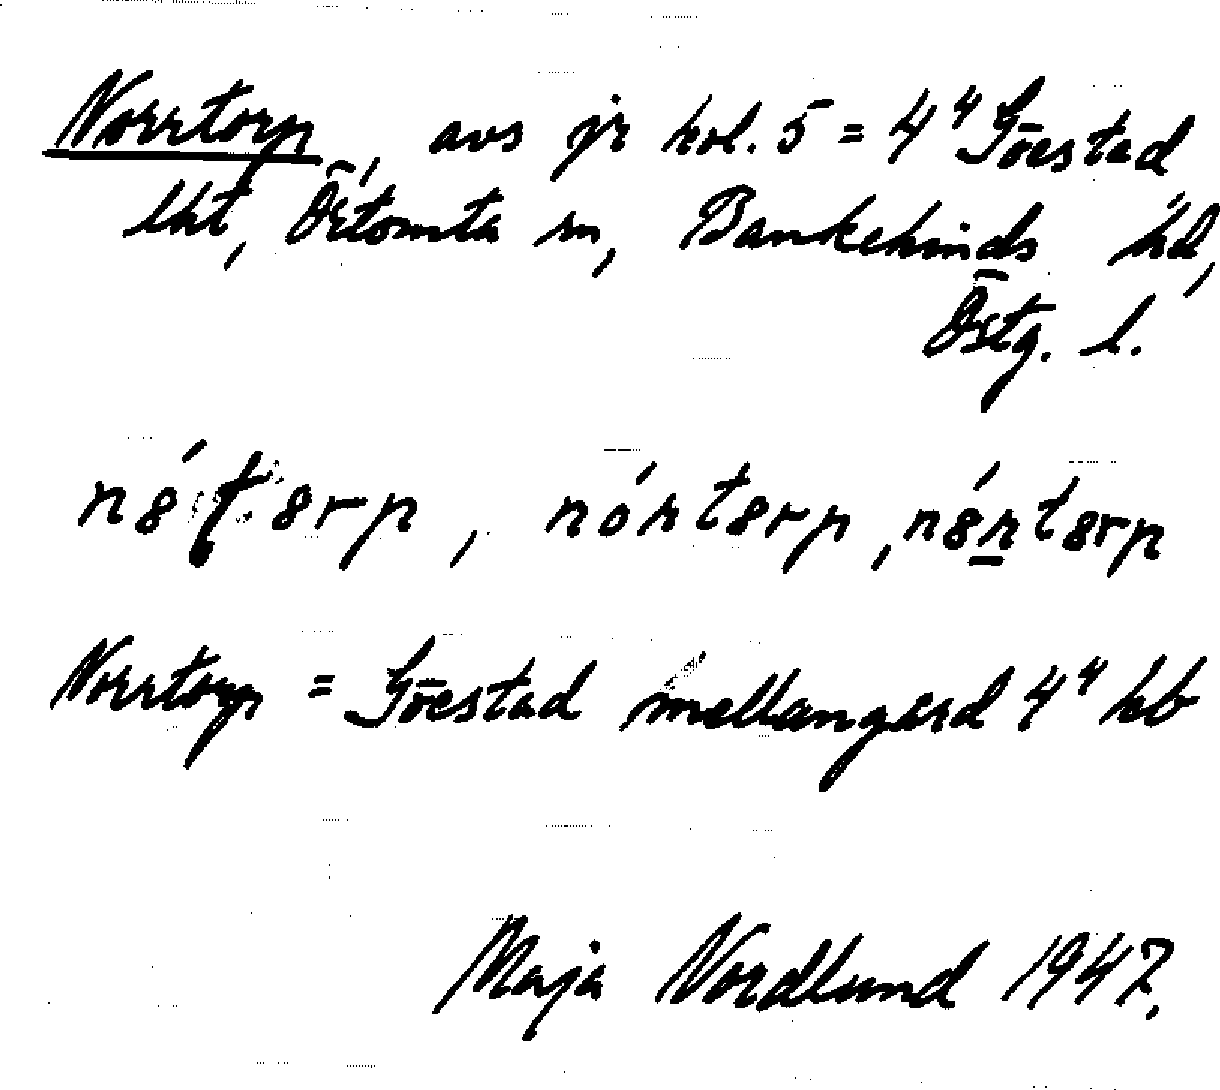 Norrtorp, avs jr kol. 5 = 4⁴ Göestad
lht, Örtomta sn, Bankekinds hd,
Östg. l.
nó torp, nórtorp, nórtorp
Norrtorp = Göestad mellangård 4⁴ hb
Maja Nordlund 1947.